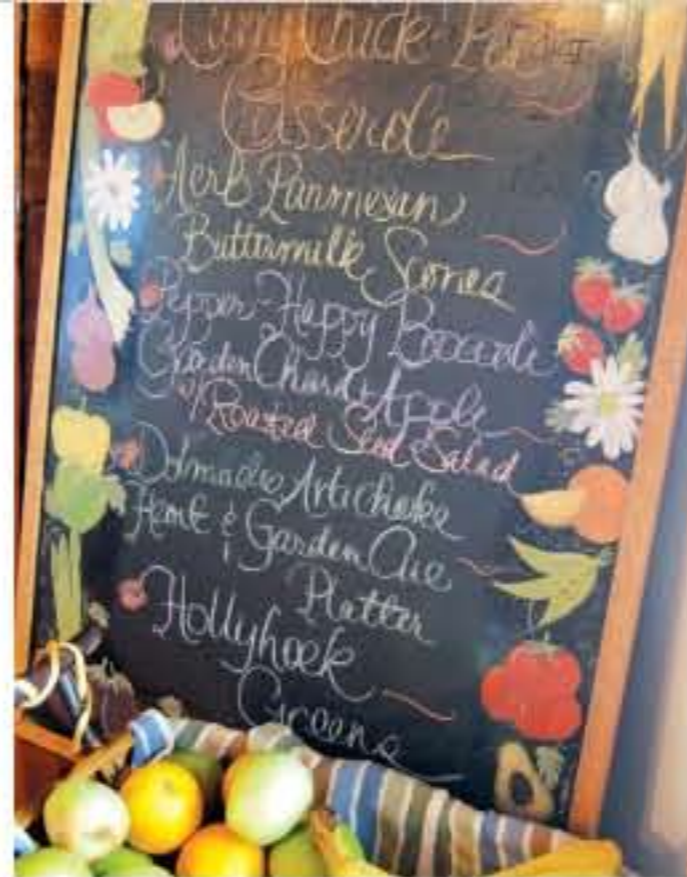 Curry Chick
Casserole
Herb Parmesan
Buttermilk Scones
Pepper-Happy Broccoli
Garden Chard & Apple
w/ Roasted Seed Salad
Artichoke
& Garden
Platter
Hollyhock
Greens